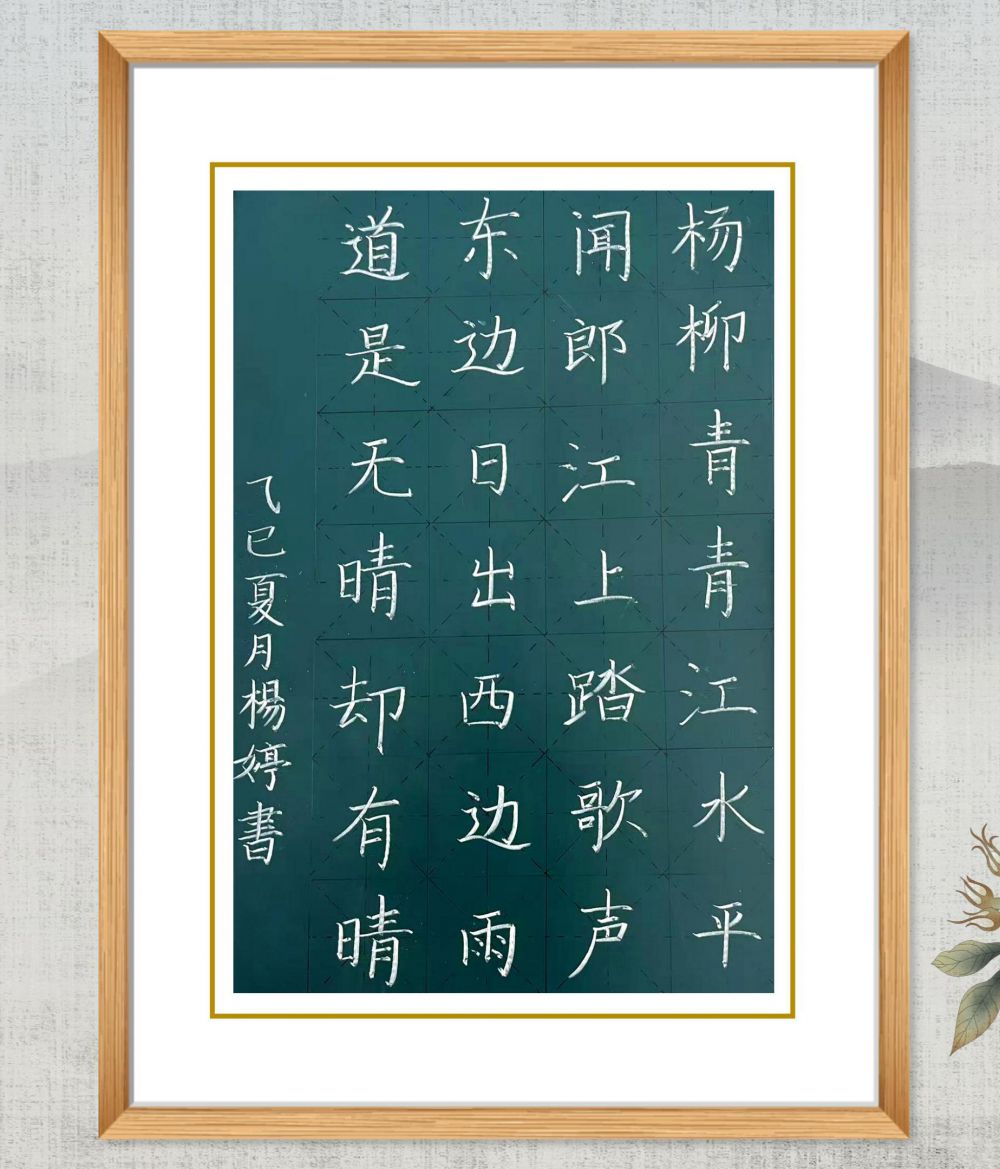 杨柳青青江水平
闻郎江上踏歌声
东边日出西边雨
道是无晴却有晴
乙巳夏月楊婷書